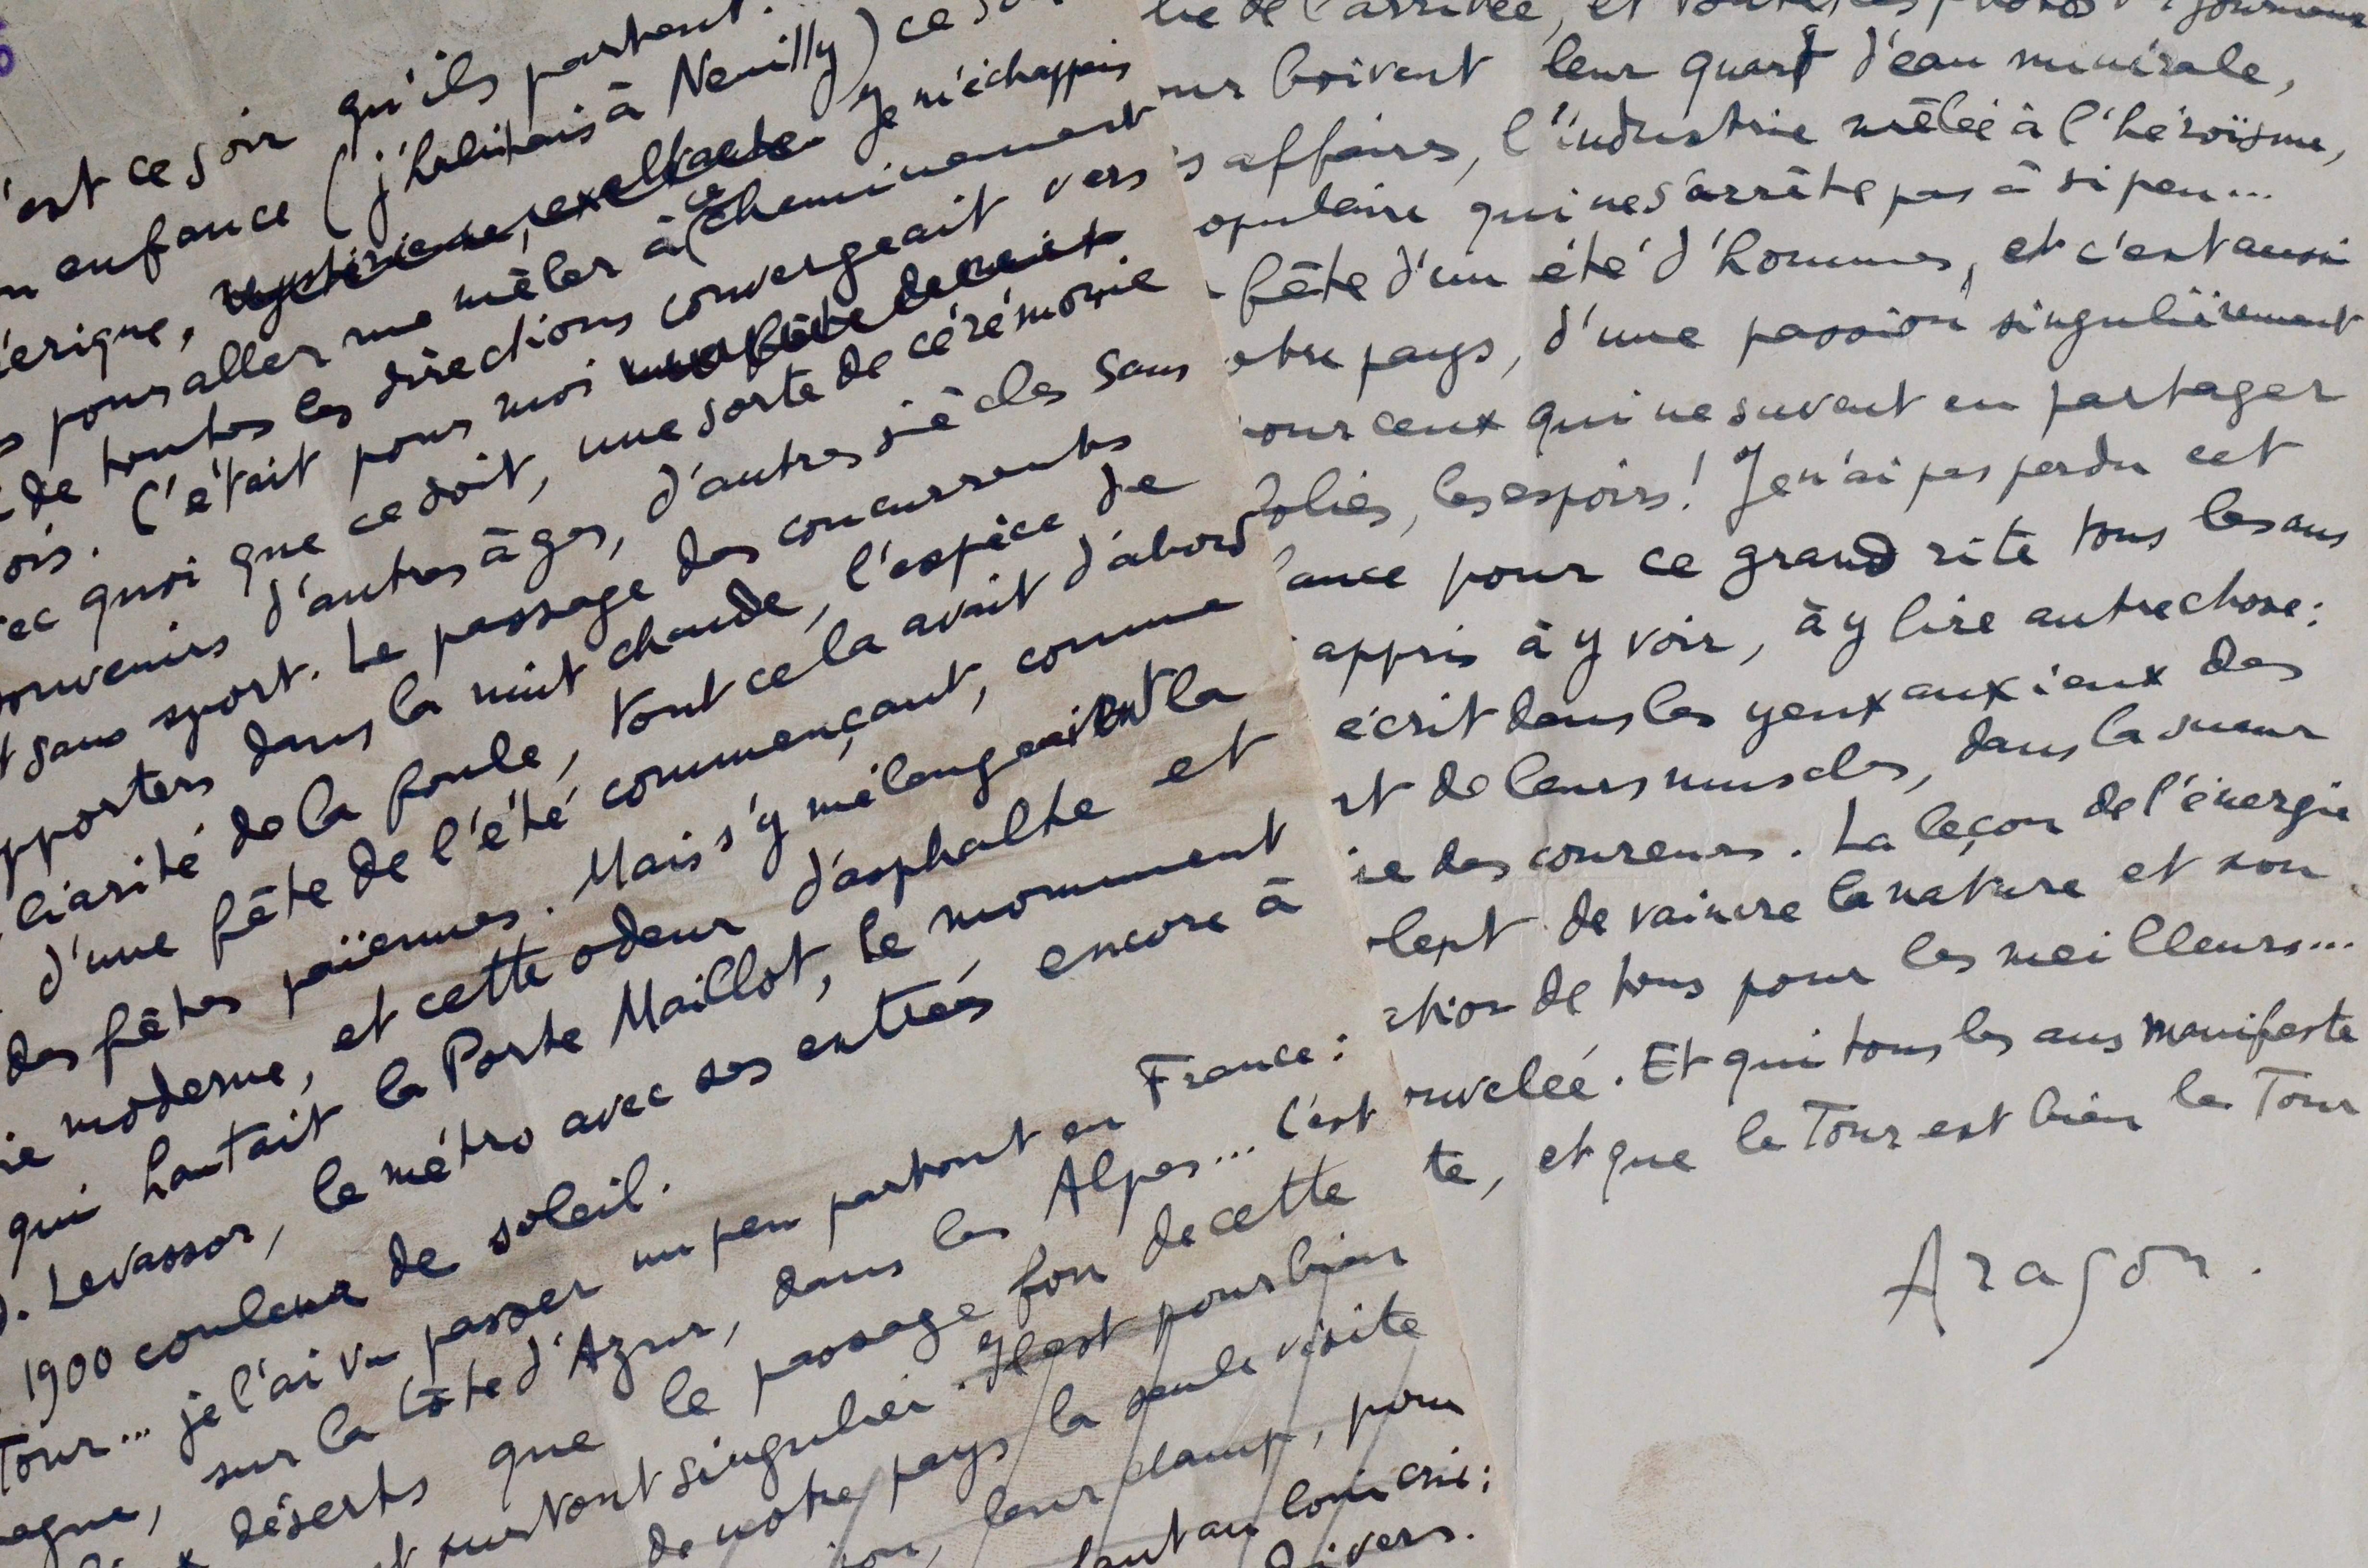 est ce soir qu'ils partent.
enfance (j'habitais à Neuilly) ce
érique, mystérieuse, exaltante. Je m'échappais
pour aller me mêler à ce cheminement
de toutes les directions convergeait vers
ois. C'était pour moi une fête de nuit
ec quoi que ce soit, une sorte de cérémonie
ouvenirs d'autres âges, d'autres siècles sans
t sans sport. Le passage des concurrents
pporters dans la nuit chaude, l'espèce de
liarité de la foule, tout cela avait d'abord
d'une fête de l'été commençant, comme
des fêtes païennes. Mais s'y mélangeaient la
ie moderne, et cette odeur d'asphalte et
qui hantait la Porte Maillot, le monument
Levassor, le métro avec ses entrées encore à
1900 couleur de soleil.
Tour... je l'ai vu passer un peu partout en France :
agne, sur la Côte d'Azur, dans les Alpes... C'est
déserts que le passage fou de cette
t surtout singulier. Il est pour bien
de notre pays la seule visite
leur champ, pour
loin crie :
divers.
de l'arrivée, et toutes les photos
ur boivent leur quart d'eau minérale,
s affaires, l'industrie mêlée à l'héroïsme,
opulaire qui ne s'arrête pas à si peu...
fête d'un été d'hommes, et c'est aussi
otre pays, d'une passion singulièrement
our ceux qui ne savent en partager
folies, les espoirs ! Je n'ai pas perdu cet
ance pour ce grand rite tous les ans
appris à y voir, à y lire autre chose :
écrit dans les yeux anxieux des
rt de leurs muscles, dans la sueur
ie des coureurs. La leçon de l'énergie
lent de vaincre la nature et son
ation de tous pour les meilleurs...
ouvelée. Et qui tous les ans manifeste
te, et que le Tour est bien le Tour
Aragon.